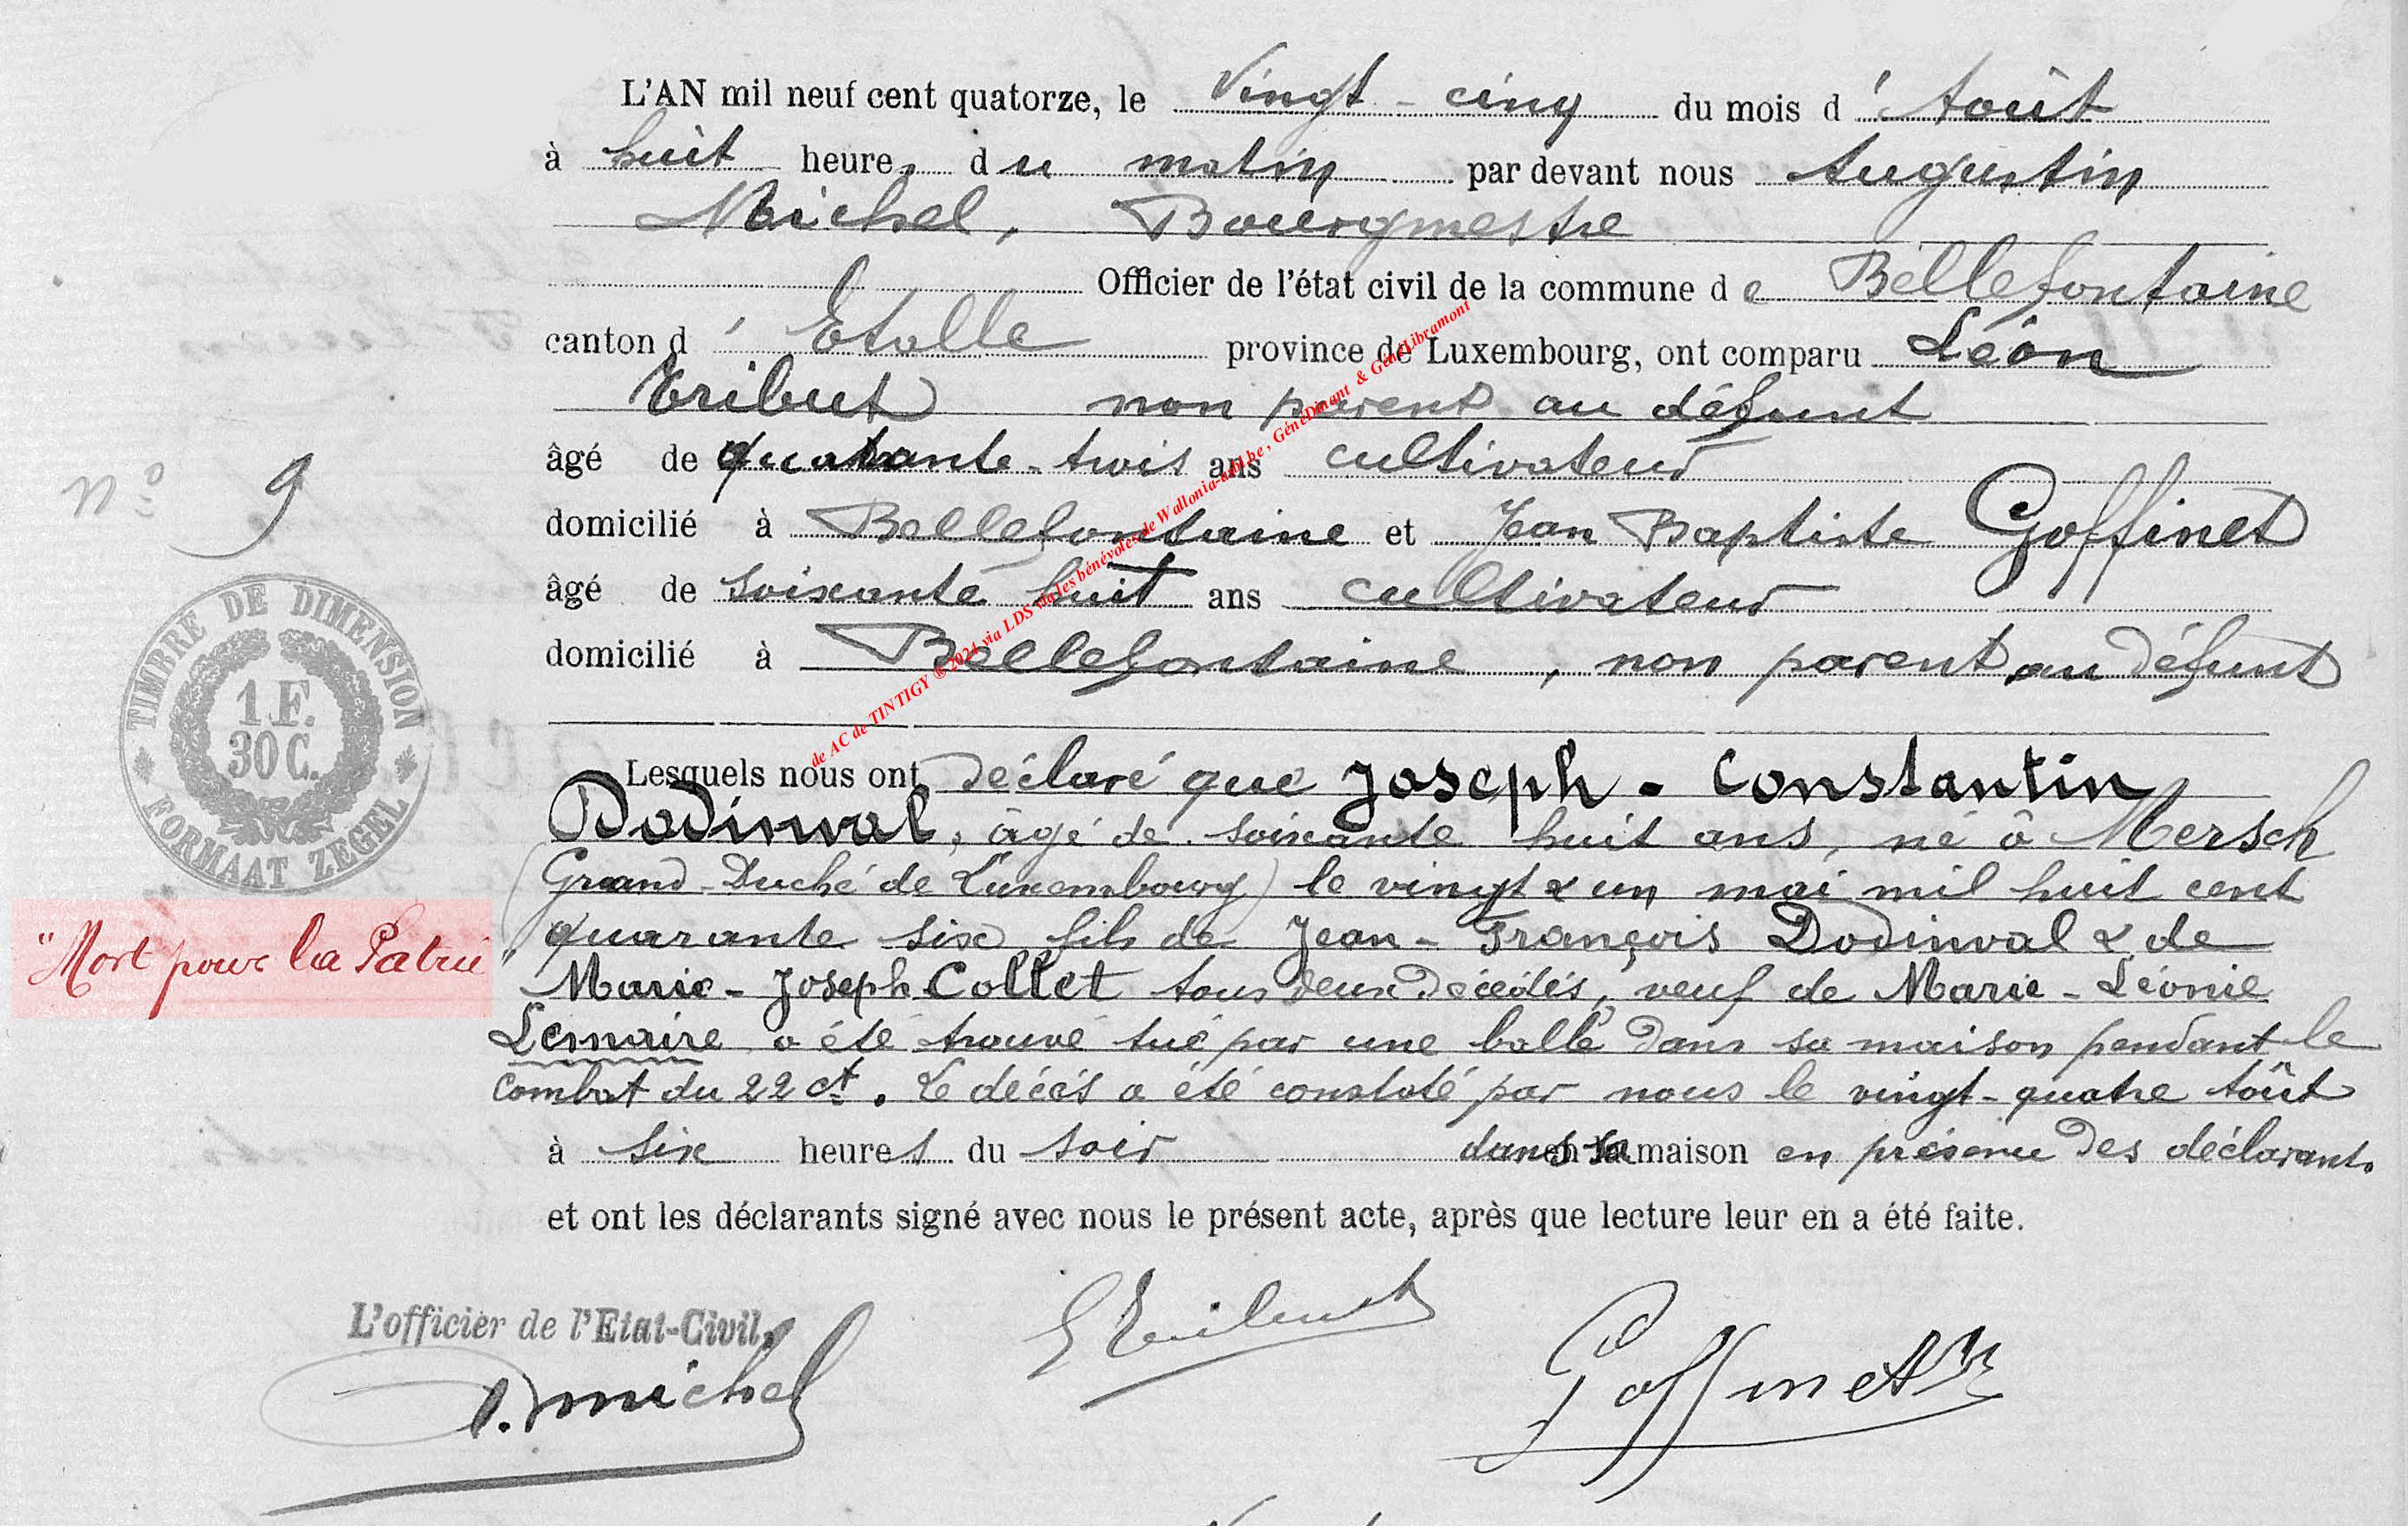 L'AN mil neuf cent quatorze, le Vingt-cinq du mois d'Août
à huit heures du matin par devant nous Augustin
Michel, Bourgmestre
Officier de l'état civil de la commune de Bellefontaine
canton d'Etalle province de Luxembourg, ont comparu Léon
Tribut non parent au défunt
âgé de quarante-trois ans cultivateur
N° 9
domicilié à Bellefontaine et Jean Baptiste Goffinet
âgé de soixante huit ans cultivateur
domicilié à Bellefontaine, non parent au défunt
TIMBRE DE DIMENSION
1 F.
30 C.
FORMAAT ZEGEL
Lesquels nous ont déclaré que Joseph-Constantin
Dodinval, âgé de soixante huit ans, né à Mersch
(Grand-Duché de Luxembourg) le vingt & un mai mil huit cent
quarante six fils de Jean-François Dodinval & de
"Mort pour la Patrie"
Marie-Joseph Collet tous deux décédés, veuf de Marie-Léonie
Lemaire a été trouvé tué par une balle dans sa maison pendant le
combat du 22 ct. Le décès a été constaté par nous le vingt-quatre Août
à six heures du soir dans sa maison en présence des déclarants
et ont les déclarants signé avec nous le présent acte, après que lecture leur en a été faite.
L'officier de l'Etat-Civil,
A. Michel
L Tribut
Goffinet
de AC de TINTIGY ® 2024 via LDS via les bénévoles de Wallonia-asbl.be, GénéDinant & GénéLibramont